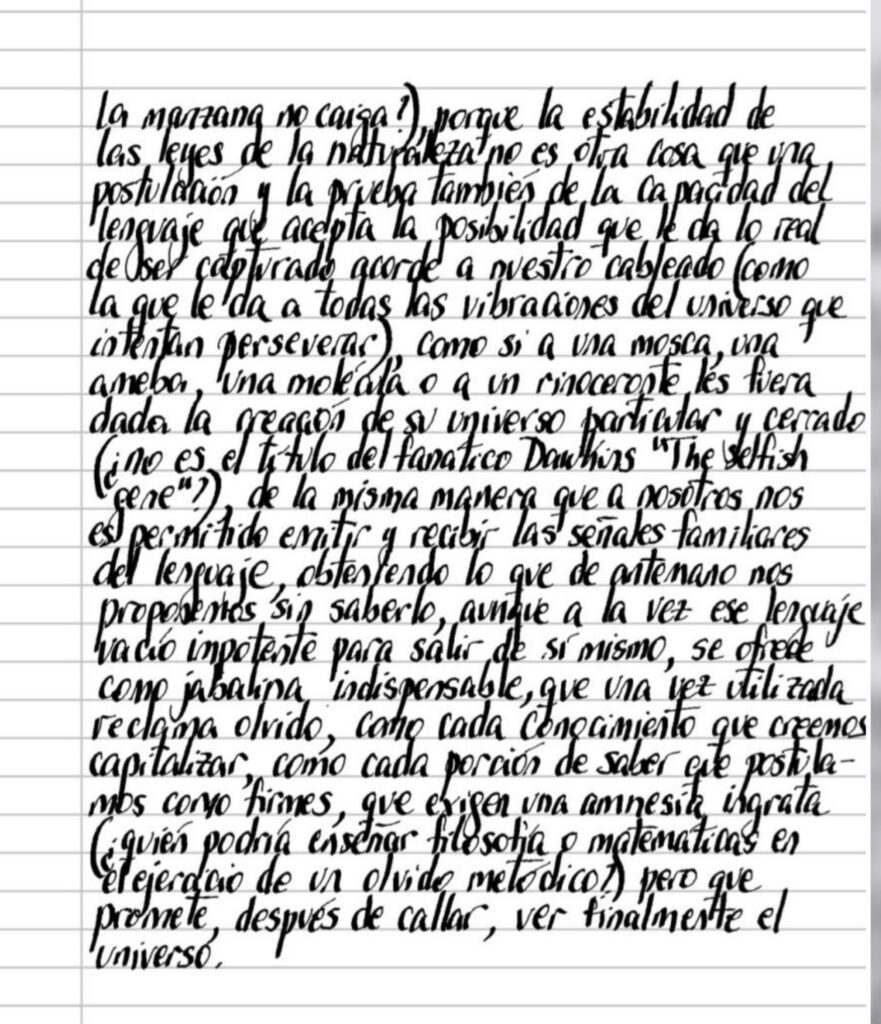 la manzana no caiga?), porque la estabilidad de
las leyes de la naturaleza no es otra cosa que una
postulación y la prueba también de la capacidad del
lenguaje que acepta la posibilidad que le da lo real
de ser capturado acorde a nuestro cableado (como
la que le da a todas las vibraciones del universo que
intentan perseverar), como si a una mosca, una
ameba, una molécula o a un rinoceronte les fuera
dada la creación de su universo particular y cerrado
(¿no es el título del fanatico Dawkins "The selfish
gene"?), de la misma manera que a nosotros nos
es permitido emitir y recibir las señales familiares
del lenguaje, obteniendo lo que de antemano nos
proponemos sin saberlo, aunque a la vez ese lenguaje
vacío inpotente para salir de sí mismo, se ofrece
como jabalina indispensable, que una vez utilizada
reclama olvido, como cada conocimiento que creemos
capitalizar, como cada porción de saber que postula-
mos como firmes, que exigen una amnesia ingrata
(¿quién podría enseñar filosofía o matemáticas en
el ejercicio de un olvido metódico?) pero que
promete, después de callar, ver finalmente el
universo.